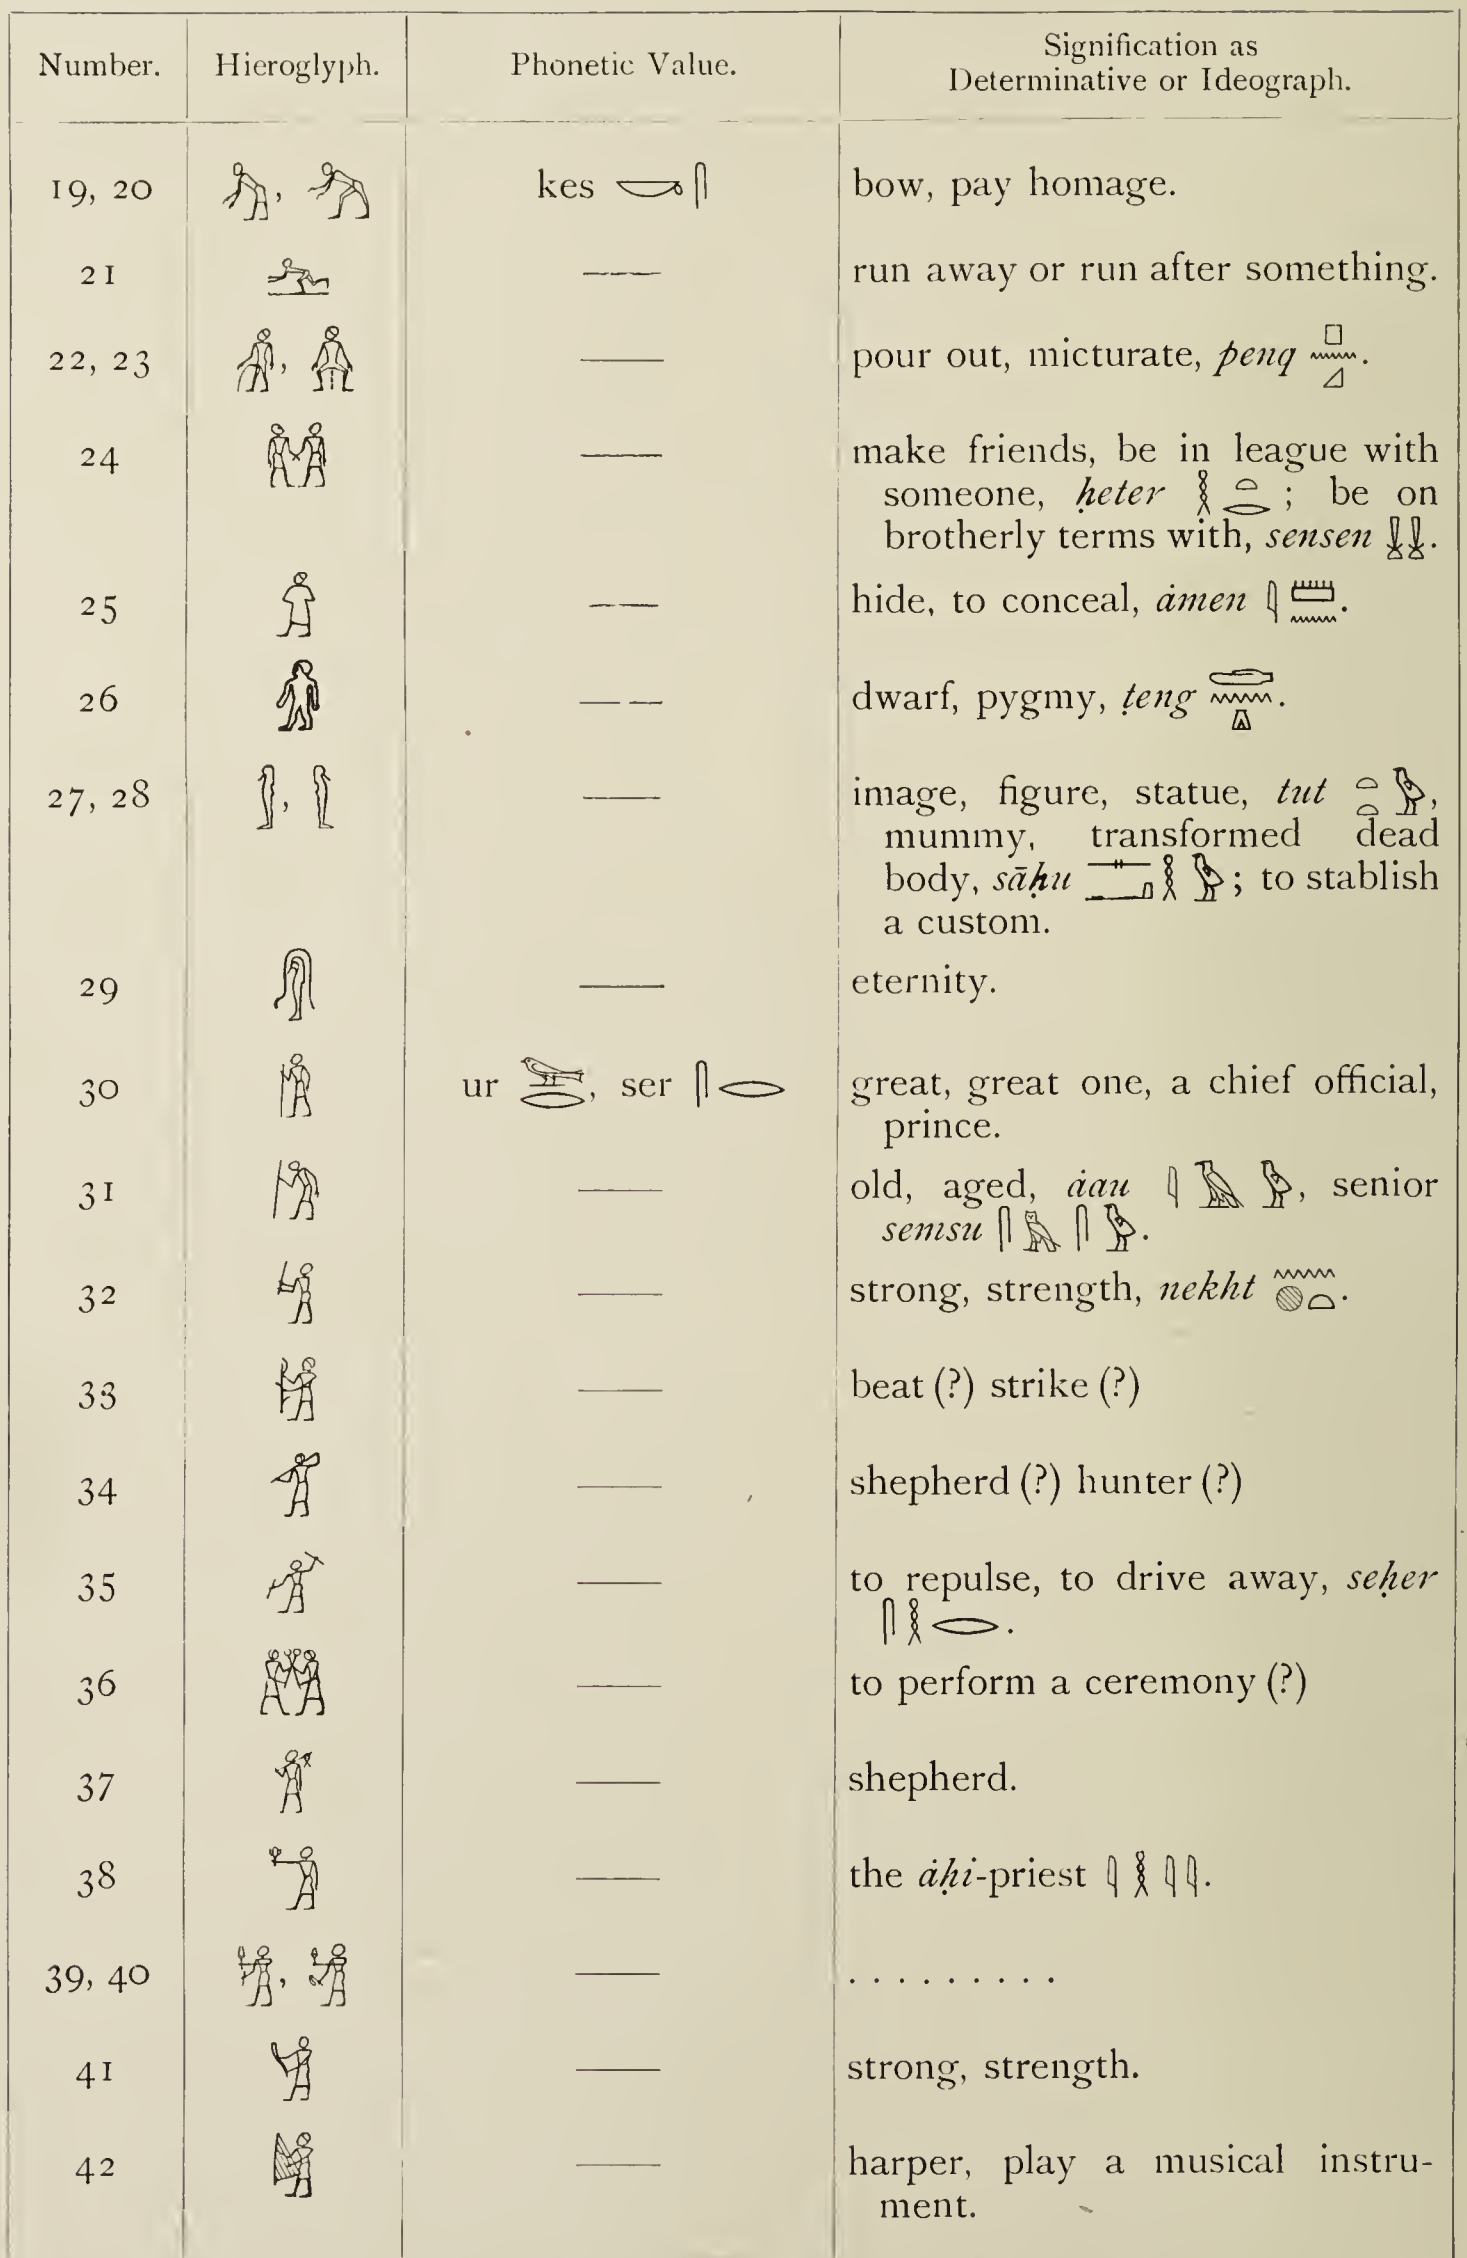 Number. Hieroglyph. Phonetic Value. Signification as
Determinative or Ideograph.
19, 20 𓀢, 𓀣 kes 𓎡𓋴 bow, pay homage.
21 — run away or run after something.
22, 23 — pour out, micturate, penq 𓊪𓈖𓈎.
24 — make friends, be in league with
someone, ḥeter 𓎛𓏏𓂋 ; be on
brotherly terms with, sensen 𓌢𓌢.
25 — hide, to conceal, ȧmen 𓇋𓏠𓈖.
26 — dwarf, pygmy, ṭeng 𓂧𓈖𓎼.
27, 28 — image, figure, statue, tut 𓏏𓏏𓅱,
mummy, transformed dead
body, sāḥu 𓊃𓂝𓎛𓅱 ; to stablish
a custom.
29 — eternity.
30 ur 𓅨𓂋, ser 𓋴𓂋 great, great one, a chief official,
prince.
31 — old, aged, ȧau 𓇋𓄿𓅱, senior
semsu 𓋴𓅓𓋴𓅱.
32 — strong, strength, nekht 𓈖𓐍𓏏.
33 — beat (?) strike (?)
34 — shepherd (?) hunter (?)
35 — to repulse, to drive away, seḥer
𓋴𓎛𓂋.
36 — to perform a ceremony (?)
37 — shepherd.
38 — the ȧḥi-priest 𓇋𓎛𓇋𓇋.
39, 40 — . . . . . . . . .
41 — strong, strength.
42 — harper, play a musical instru-
ment.